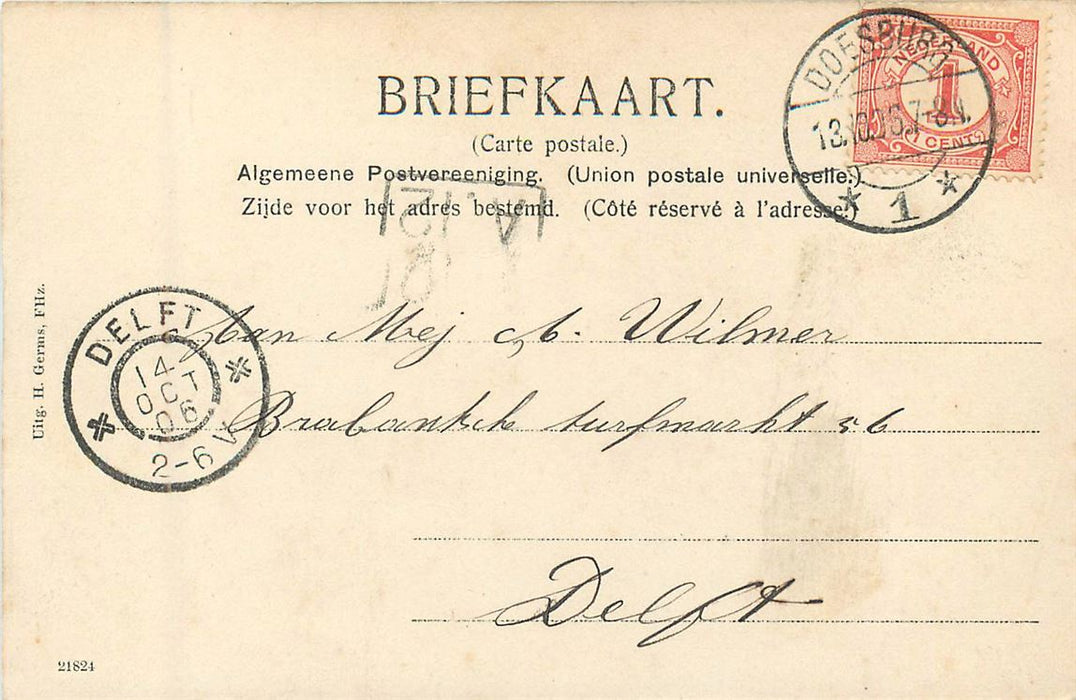 BRIEFKAART.
(Carte postale.)
Algemeene Postvereeniging. (Union postale universelle.)
Zijde voor het adres bestemd. (Côté réservé à l'adresse.)
NEDERLAND
1
1 CENT
DOESBURG
13.10.06.7-8 N.
1
A. 12
DELFT
14
OCT
06
2-6 V
Aan Mej A. Wilmer
Brabantsche turfmarkt 56
Delft
Uitg. H. Germs, FHz.
21824